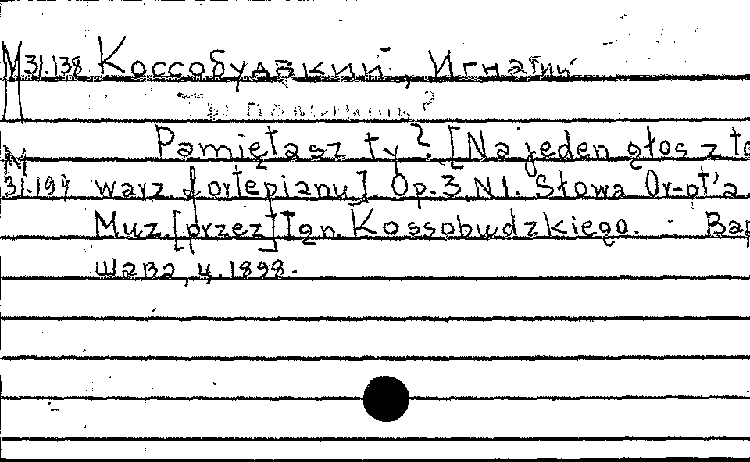 М 31.138 Коссобудзкий, Игнатий
Ты помнишь?
Pamiętasz ty? [Na jeden głos z to-
М 31.197 warz fortepianu] Op. 3. N1. Słowa Or-ot'a.
Muz. [przez] Ign. Kossobudzkiego. - Вар-
шава, ц. 1898.